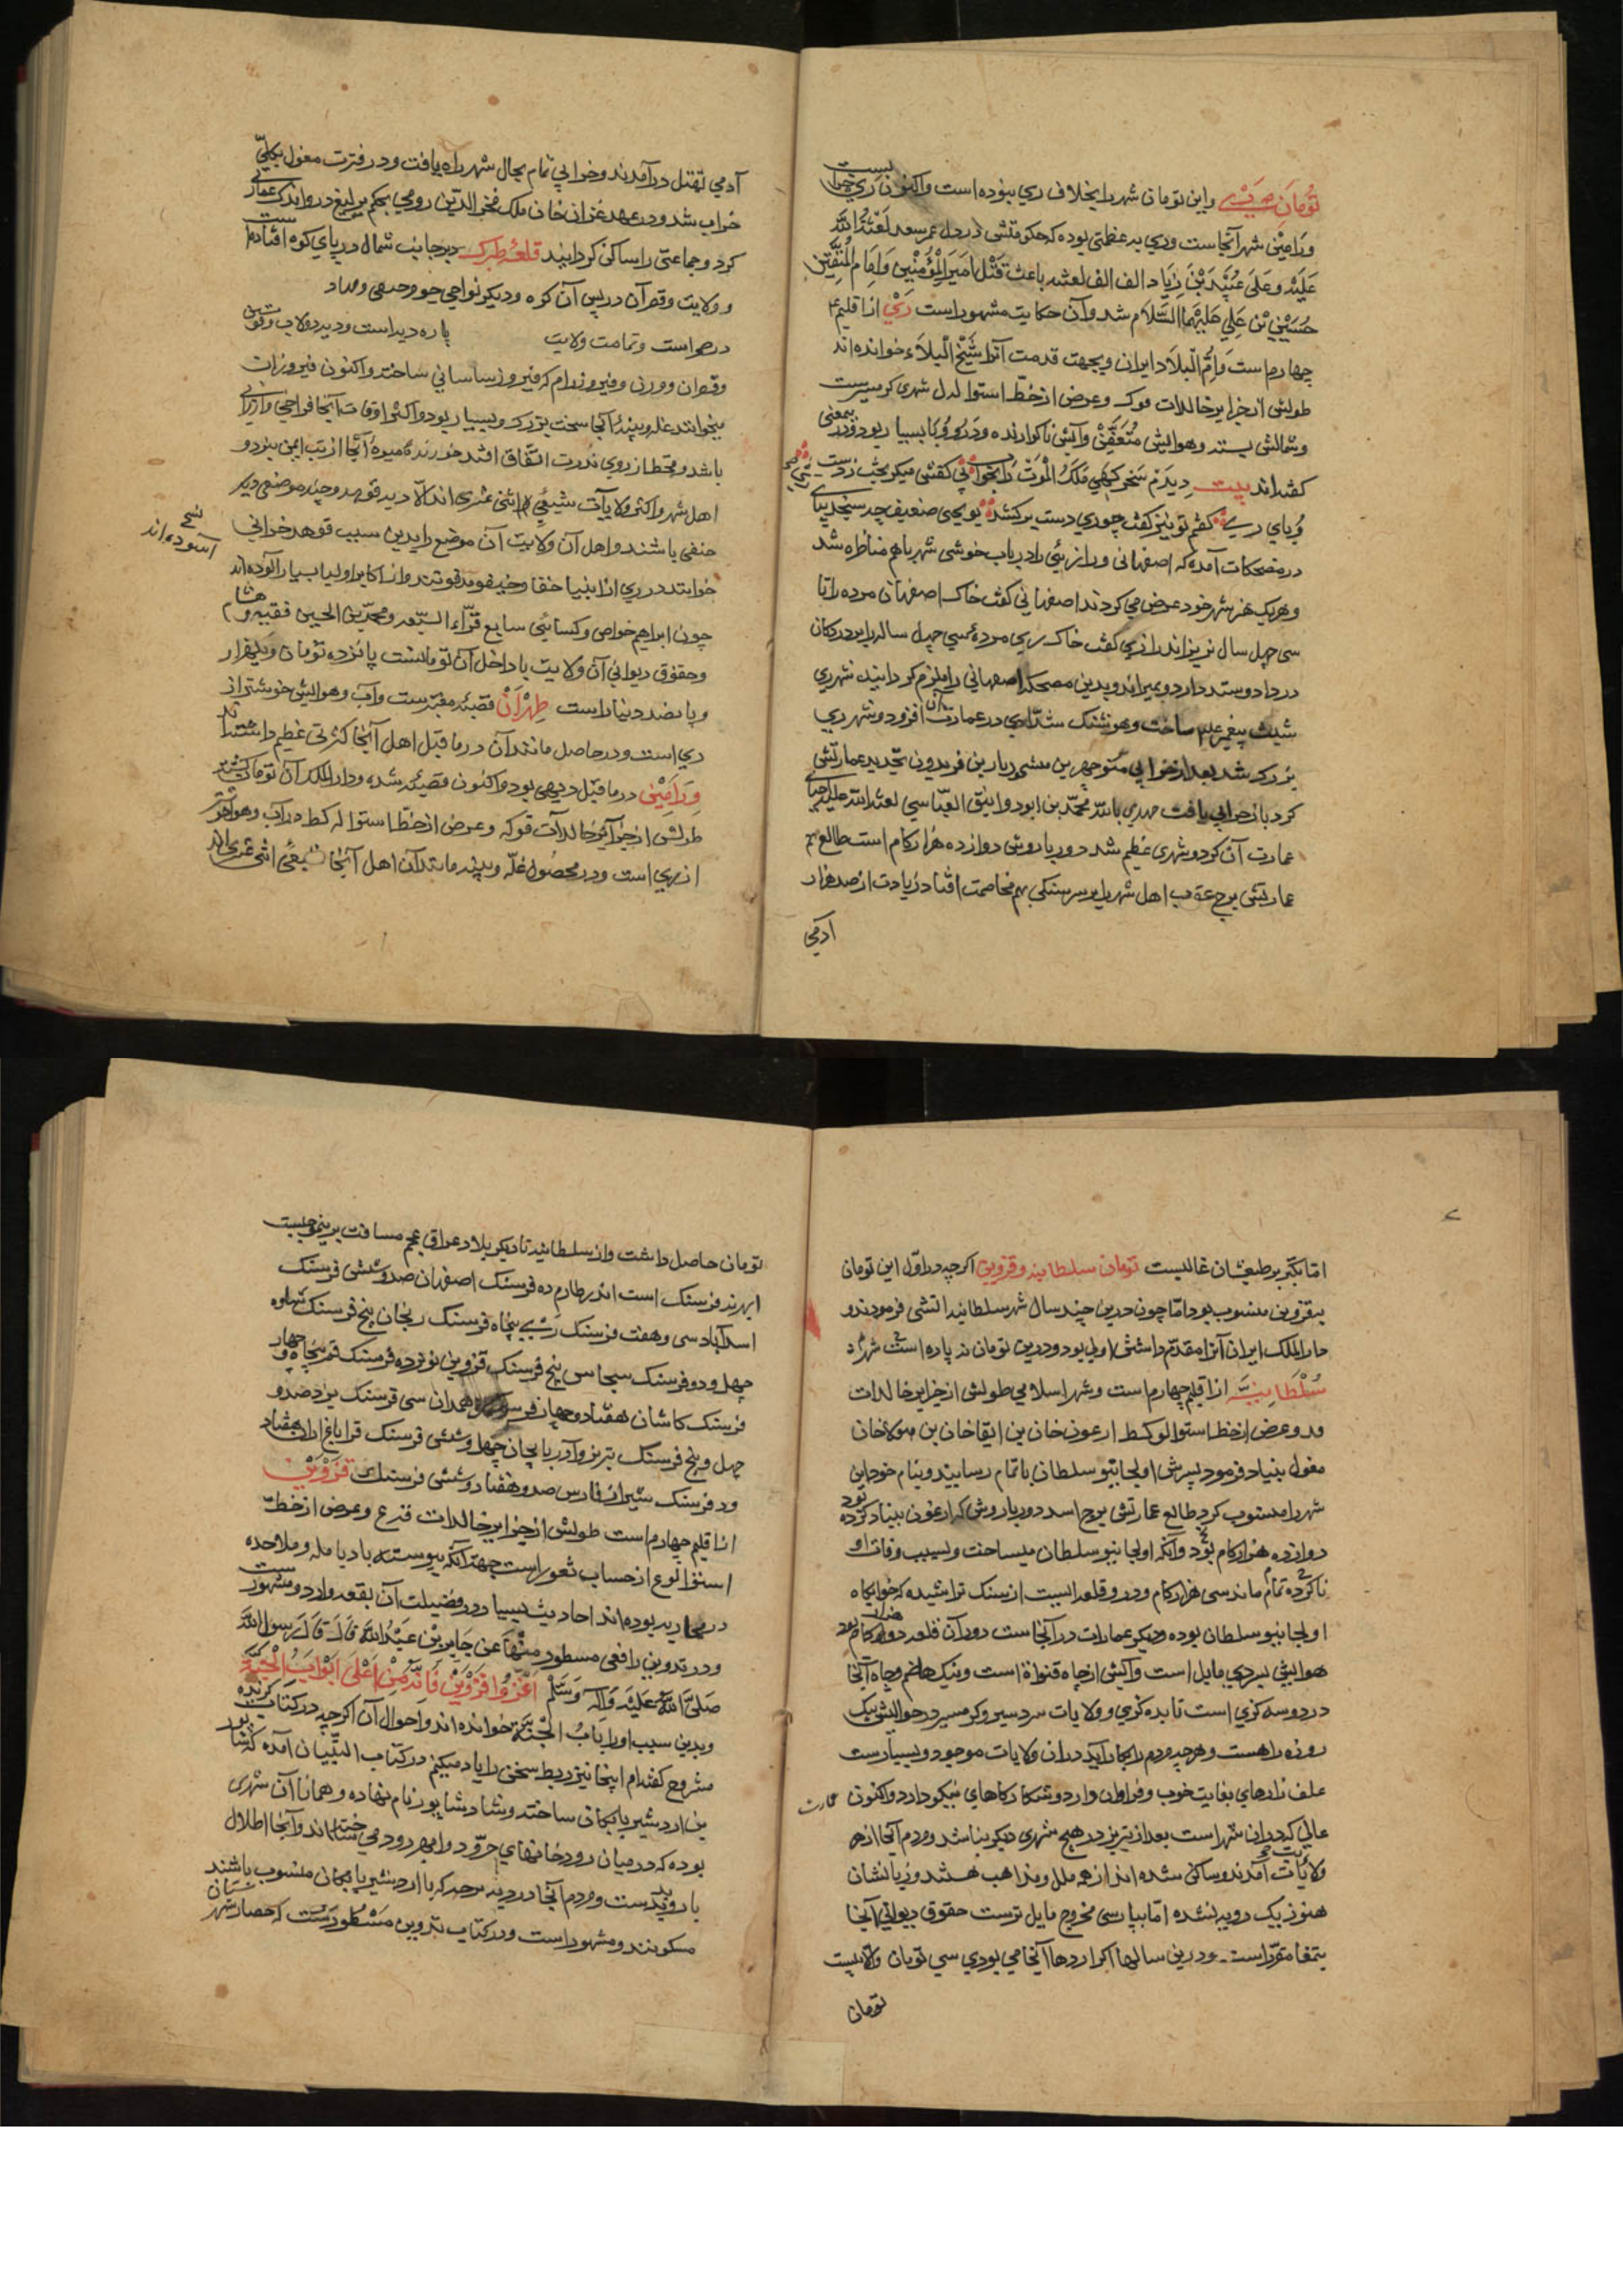 تومان ري واین تومان شهر را بخلاف ري نبوده است واکنون ري خراب است
ورامین شهر آنجاست وري بدعظمتي بوده که حکومتش در دل عمر سعد لعنة الله
علیه وعلی عبید بن زیاد الف الف لعنه باعث قتل امیر المؤمنین وامام المتقین
حسین بن علي علیهما السلام شد وآن حکایت مشهور است ري از اقلیم
چهارم است وام البلاد ایران وبجهت قدمت آنرا شیخ البلاد خوانده اند
طولش از جزایر خالدات فوک وعرض از خط استوا لدل شهري کرمسیرست
وشمالش بسته وهوایش متعفن وآبش ناکوارنده ودر و وبا بسیار بود ودر بمعنی
کفته اند بیت دیدم سحرکهي ملک الموت را بخواب بي کفش میکریخت زدست
وباي ري کفتم تو نیز کفت چو ري دست برکشد بویحیی ضعیف چه سنجد بپاي
در مضحکات آمده که اصفهاني ورازیي را در باب خوشي شهر باهم مناظره شد
وهریک هنر شهر خود عرض مي کردند اصفهاني کفت خاک اصفهان مرده را تا
سي چهل سال نریزاند رازي کفت خاک ري مرده سي چهل ساله را بر در دکان
در داد وستد دارد وبمیراند وبدین مضحکه اصفهاني را ملزم کردانید شهر ري
شیث پیغمبر علیه ساخت وهوشنک بیشدادي در عمارت آن افزود وشهر ري
بزرک شد بعد از خرابي منوچهر بن میشي دربار بن فریدون تجدید عمارتش
کرد باز خرابي یافت مهدي بالله محمد بن ابو دوانیق العباسي لعنة الله علیه احیاي
عمارت آن کرد وشهري عظیم شد دور باروش دوازده هزار کام است طالع
عمارتش برج عقرب اهل شهر را بر سر سنکي بهم مخاصمت افتاد زیادت از صد هزار
ادمي
آدمي بقتل در آمدند وخرابي تمام بحال شهر راه یافت ودر فترت مغول بکلي
خراب شد ودر عهد غزان خان ملک فخر الدین رومي بحکم یرلیغ در و اندک عمارتي
کرد وجماعتي را ساکن کردانید قلعه طبرک بر جانب شمال در پاي کوه افتاده است
وولایت وقصران در پس آن کوه ودیکر نواحي
در صحراست وتمامت ولایت پاره دیه است ودیه دولاب وقوسین
وقصران وورزین وفیروز رام که فیروز ساساني ساخته واکنون فیروزران
میخوانند غله وپنبه آنجا سخت بزرک وبسیار بود واکثر اوقات آنجا فراخي وارزاني
باشد وقحط از روي ندرت اتفاق افتد خورنده میوه آنجا از تب ایمن نبود و
اهل شهر واکثر ولایات شیعي اثني عشري اند الا دیه قوهد وچند موضعي دیکر
حنفي باشند واهل آن ولایت آن موضع را بدین سبب قوهد خراني
آسوده اند
خوانند در ري از انبیا خفا وجند قوم مدفونند واز اکابر اولیا بسیار آلوده اند
چون ابراهیم خواص وکسائي سابع قراء السبعه ومحمد بن الحسن فقیه وهشام
وحقوق دیواني آن ولایت با داخل آن تومانست پانزده تومان ویکهزار
وپانصد دینار است طهران قصبه معتبرست وآب وهوایش خوشتر از
ري است ودر حاصل مانند آن در ما قبل اهل آنجا کثرتي عظیم داشته اند
ورامین در ما قبل دیهي بود واکنون قصبه شده ودار الملک آن تومان کشته
طولش از جزایر خالدات قوکه وعرض از خط استوا له کط در آب وهوا خوشتر
از ري است ودر محصول غله وپنبه مانند آن اهل آنجا شیعي اثني عشري اند
اما تکبر بر طبعشان غالبست تومان سلطانیه وقزوین اکرچه در اول این تومان
بقزوین منسوب بود اما چون درین چند سال شهر سلطانیه انشي فرمودند و
دار الملک ایران آنرا مقدم داشتن اولي بود ودرین تومان نه پاره است شهر
سلطانیه از اقلیم چهارم است وشهر اسلامي طولش از جزایر خالدات
فد وعرض از خط استوا لو کط ارغون خان بن ابقا خان بن هولاخان
مغول بنیاد فرمود پسرش اولجایتو سلطان باتمام رسانید وبنام خود این
شهر را منسوب کرد طالع عمارتش برج اسد دور باروش که ارغون بنیاد کرده بود
دوازده هزار کام بود وآنکه اولجایتو سلطان میساخت وبسبب وفات او
ناکرده تمام ماند سي هزار کام ودر و قلعه ایست از سنک تراشیده که خوابکاه
اولجایتو سلطان بوده ودیکر عمارات در آنجاست دور آن قلعه دو هزار کام بود
هوایش بسردي مایل است وآبش از چاه وقنوات است ونیک هاضم وچاه آنجا
در دو سه کزي است تا بده کزي وولایات سردسیر وکرمسیر در حوالیش بیک
روزه راه هست وهرچه مردم را بکار آید در ان ولایات موجود وبسیارست
علف زارهاي بغایت خوب وفراوان وارد وشکارکاههاي نیکو دارد واکنون عمارت
عالي که در ان شهر است بعد از تبریز در هیچ شهري دیکر نباشد ومردم آنجا از هر
ولایت آمدند وساکن شده اند از همه ملل ومذاهب هستند وزبانشان
هنوز بیک رویه نشده اما بپارسي ممزوج مایل ترست حقوق دیواني آنجا
بتمغا مقرر است ودرین سالها اکر اردها آنجا مي بودي سي تومان والا بیست
تومان
تومان حاصل داشت واز سلطانیه تا دیکر بلاد عراق عجم مسافت برینموجبست
ابهر نه فرسنک است اندر طارم ده فرسنک اصفهان صد وشش فرسنک
اسدآباد سي وهفت فرسنک ري پنجاه فرسنک زنجان پنج فرسنک نهاوند
چهل ودو فرسنک سجاس پنج فرسنک قزوین نوزده فرسنک قم پنجاه وچهار
فرسنک کاشان هفتاد وچهار فرسنک همدان سي فرسنک یزد صد و
چهل وپنج فرسنک تبریز وآذربایجان چهل وشش فرسنک قراباغ اران هفتاد
ودو فرسنک شیراز فارس صد وهفتاد وشش فرسنک قزوین
از اقلیم چهارم است طولش از جزایر خالدات وعرض از خط
استوا لوع از حساب ثغور است جهة آنکه پیوسته با دیلمه وملاحده
در محاربه بوده اند احادیث بسیار در فضیلت آن بقعه وارد ومشهورست
ودر تدوین رافعي مسطور منها عن جابر بن عبد الله قال قال رسول الله
صلی الله علیه وآله وسلم اغزوا قزوین فانه من اعلی ابواب الجنة
وبدین سبب اورا باب الجنة خوانده اند واحوال آن اکرچه در کتاب کزیده
مشروح کفته ام اینجا نیز ربط سخن را یاد میکنم در کتاب التبیان آمده که شاپور
بن اردشیر بابکان ساخته وشاد شاپور نام نهاده وهمانا آن شهري
بوده که در میان رودخانهاي خرود وابهر رود مي ساخته اند وآنجا اطلال
بارو پدیدست ومردم آنجا در دیه سرجه کر با اردشیر بابکان منسوب باشند
مسکونند ومشهور است ودر کتاب تدوین مسطورست که حصار شهرستان